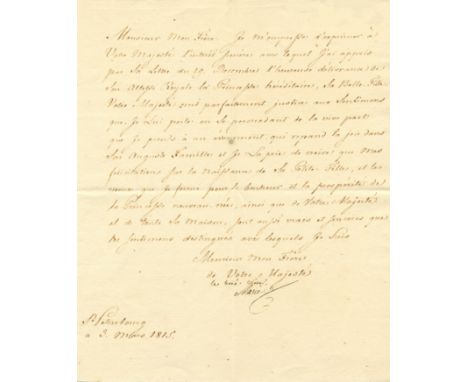 Monsieur Mon Frère. Je m'empresse d'exprimer à
Votre Majesté l'interet sincère avec lequel J'ai appris
par Sa Lettre du 19. Decembre l'heureuse délivrance de
Son Altesse Royale la Princesse héréditaire, Sa Belle Fille.
Votre Majesté rend parfaitement justice aux Sentimens
que Je Lui porte en Se persuadant de la vive part
que Je prends à un évenement qui repand la joie dans
Son Auguste Famille, et Je La prie de croire que Mes
felicitations sur la naissance de Sa Petite Fille, et les
voeux que Je forme pour le bonheur et la prospérité de
la Princesse nouveau née, ainsi que de Votre Majesté
et de toute Sa Maison, sont aussi vraies et sincères que
les Sentimens distingués avec lesquels Je Suis
Monsieur Mon Frère
de Votre Majesté
la
Marie
St Petersbourg
à 3. Mars 1815.